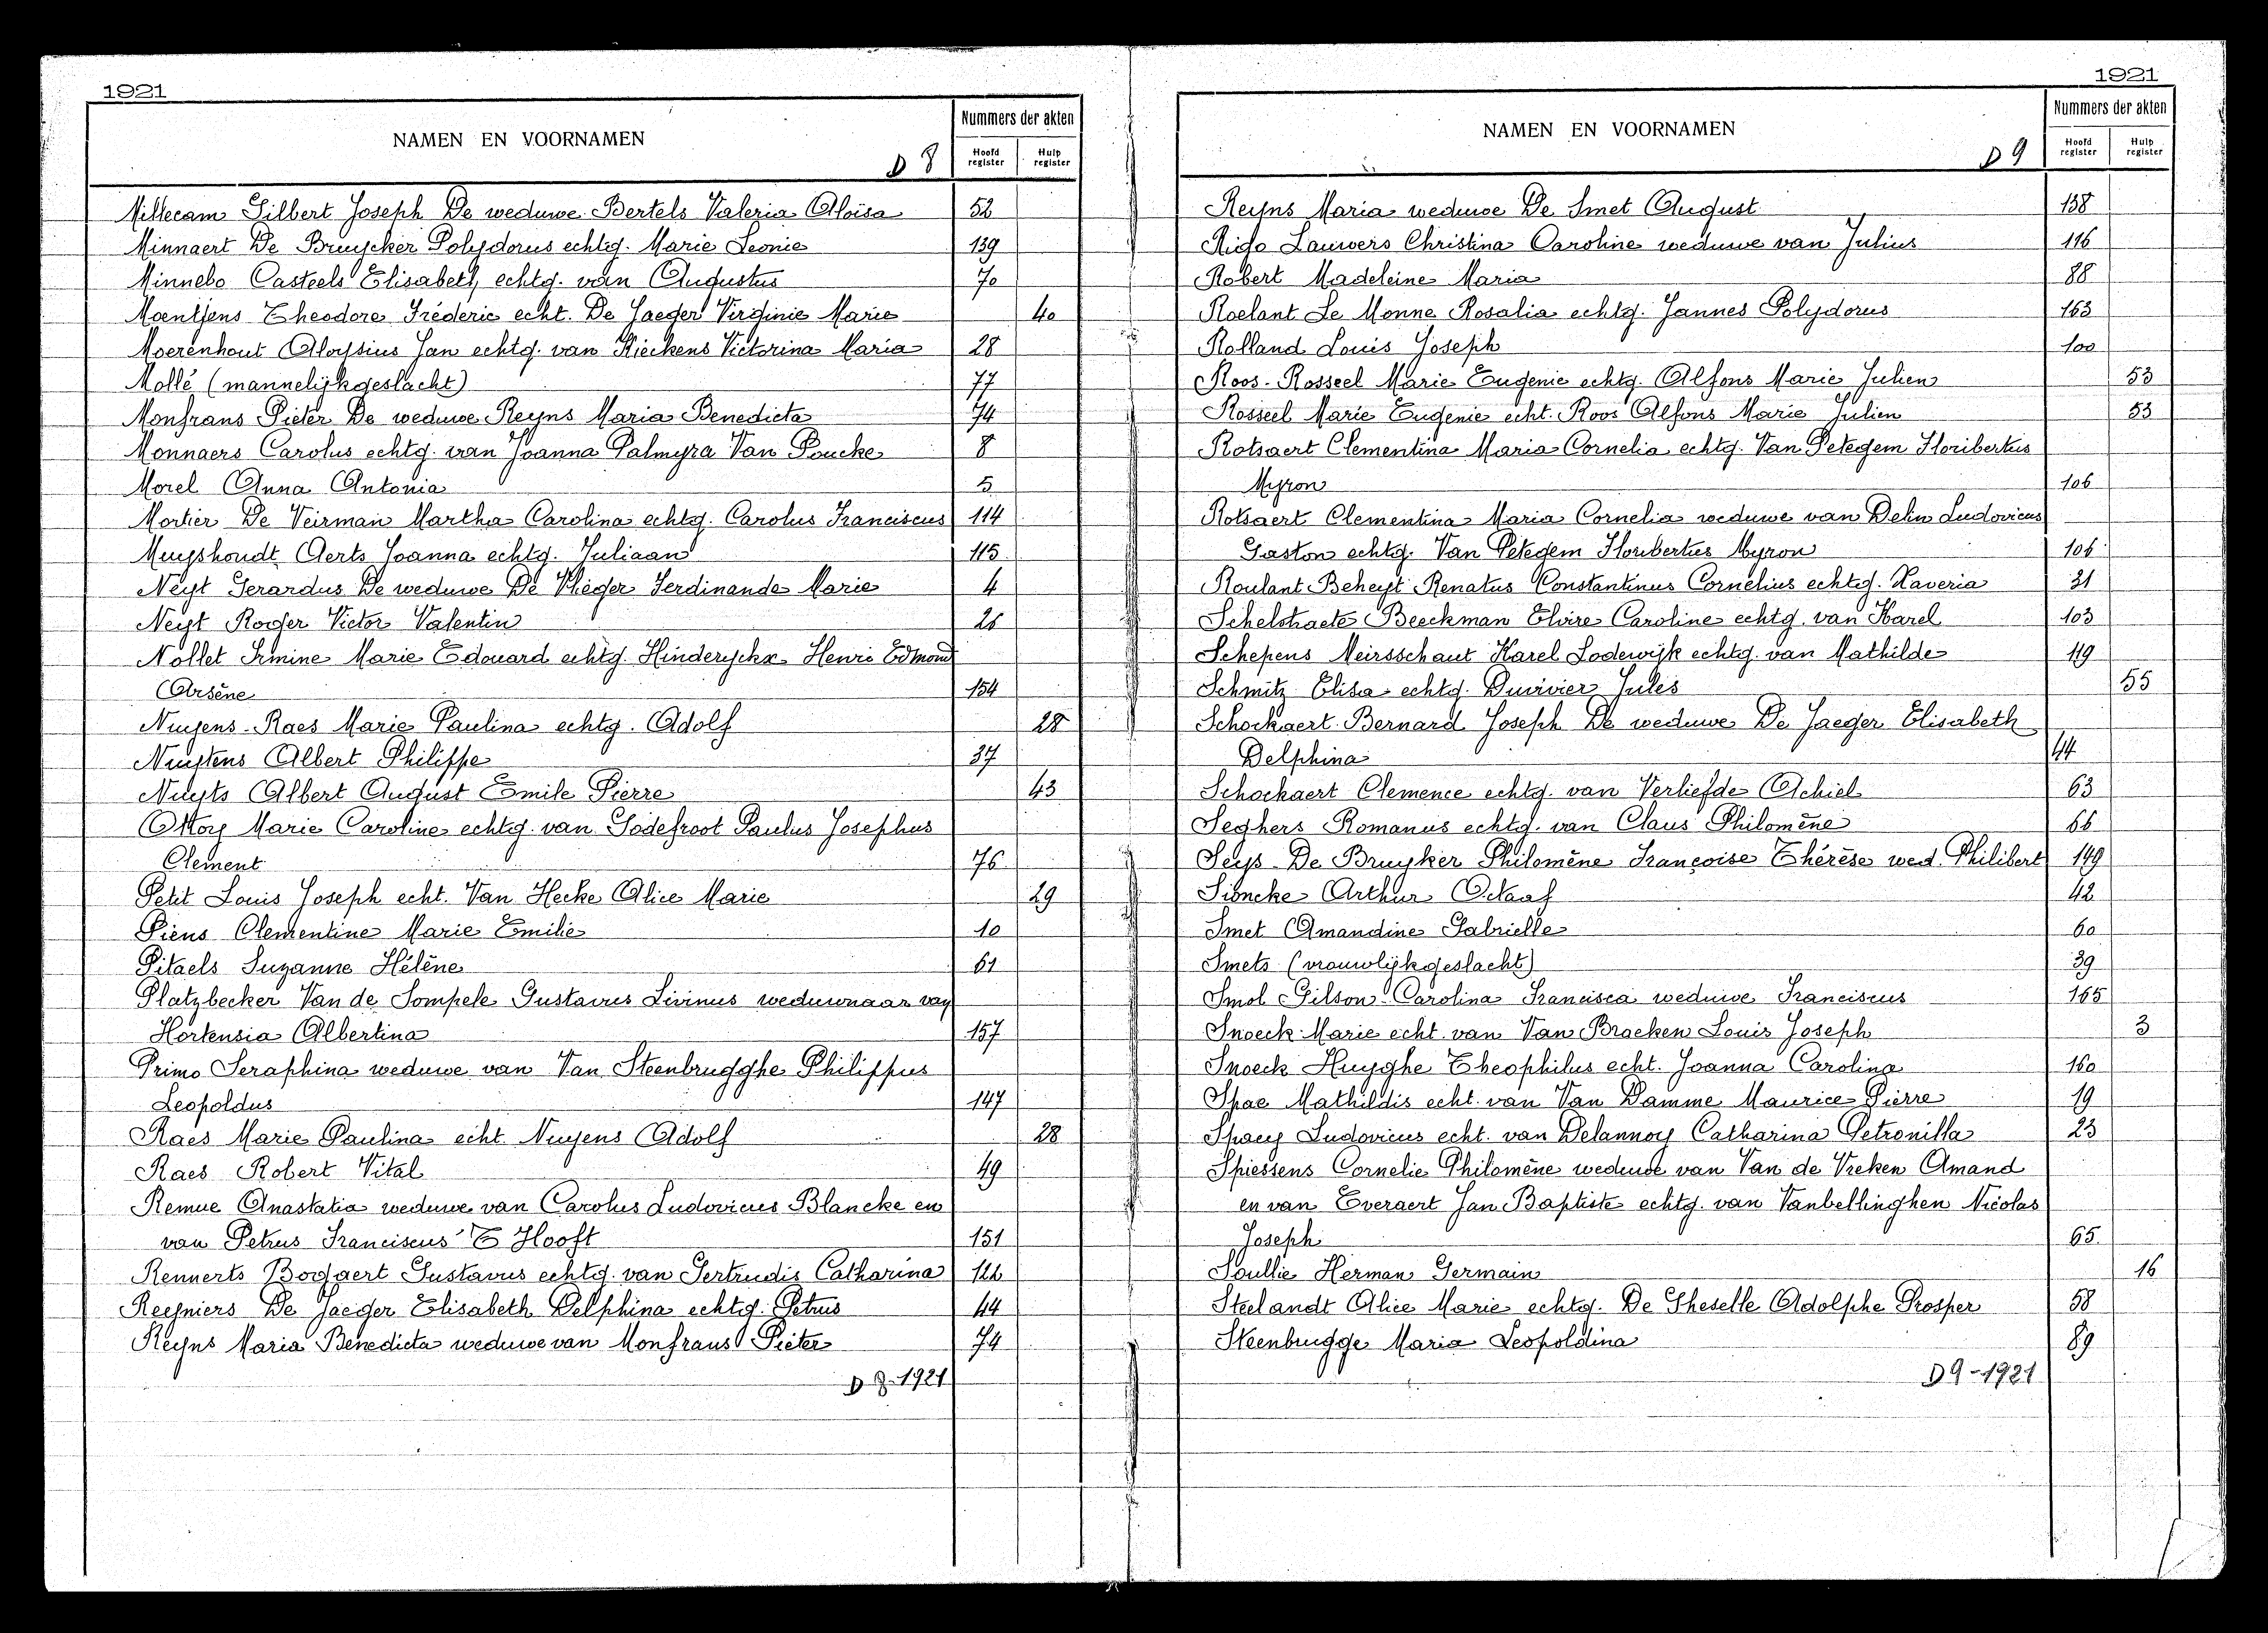 1921
NAMEN EN VOORNAMEN
D 8
Nummers der akten
Hoofd register
Hulp register
Millecam Gilbert Joseph De weduwe Bertels Valeria Aloisa 52
Minnaert De Bruycker Polydorus echtg. Marie Leonie 139
Minnebo Casteels Elisabeth echtg. van Augustus 70
Moentjens Theodore Fréderic echt. De Jaeger Virginie Marie 40
Moerenhout Aloysius Jan echtg. van Kieckens Victorina Maria 28
Mollé (mannelijkgeslacht) 77
Monfrans Pieter De weduwe Reyns Maria Benedicta 74
Monnaers Carolus echtg. van Joanna Palmyra Van Poucke 8
Morel Anna Antonia 5
Mortier De Veirman Martha Carolina echtg. Carolus Franciscus 114
Muyshondt Aerts Joanna echtg. Juliaan 115
Neyt Gerardus De weduwe De Vlieger Ferdinande Marie 4
Neyt Roger Victor Valentin 26
Nollet Irmine Marie Edouard echtg. Hinderyckx Henri Edmond
Arsène 154
Nuyens-Raes Marie Paulina echtg. Adolf 28
Nuytens Albert Philippe 37
Nuyts Albert August Emile Pierre 43
Ottoy Marie Caroline echtg. van Godefroot Paulus Josephus
Clement 76
Petit Louis Joseph echt. Van Hecke Alice Marie 29
Piens Clementine Marie Emilie 10
Pitaels Suzanne Hélène 61
Platzbecker Van de Sompele Gustavus Livinus weduwnaar van
Hortensia Albertina 157
Primo Seraphina weduwe van Van Steenbrugghe Philippus
Leopoldus 147
Raes Marie Paulina echt. Nuyens Adolf 28
Raes Robert Vital 49
Remue Anastatia weduwe van Carolus Ludovicus Blancke en
van Petrus Franciscus T Hooft 151
Rennerts Bogaert Gustavus echtg. van Gertrudis Catharina 122
Reyniers De Jaeger Elisabeth Delphina echtg. Petrus 44
Reyns Maria Benedicta weduwe van Monfrans Pieter 74
D 8-1921
1921
NAMEN EN VOORNAMEN
D 9
Nummers der akten
Hoofd register
Hulp register
Reyns Maria weduwe De Smet August 138
Rigo Lauwers Christina Caroline weduwe van Julius 116
Robert Madeleine Maria 88
Roelant Le Monne Rosalia echtg. Jannes Polydorus 163
Rolland Louis Joseph 100
Roos-Rosseel Marie Eugenie echtg. Alfons Marie Julien 53
Rosseel Marie Eugenie echt. Roos Alfons Marie Julien 53
Rotsaert Clementina Maria Cornelia echtg. Van Petegem Floribertus
Myron 106
Rotsaert Clementina Maria Cornelia weduwe van Delin Ludovicus
Gaston echtg. Van Petegem Floribertus Myron 106
Roulant Beheyt Renatus Constantinus Cornelius echtg. Xaveria 31
Schelstraete Beeckman Elvire Caroline echtg. van Karel 103
Schepens Meirsschaut Karel Lodewijk echtg. van Mathilde 119
Schmitz Elisa echtg. Duvivier Jules 55
Schockaert Bernard Joseph De weduwe De Jaeger Elisabeth
Delphina 44
Schockaert Clemence echtg. van Verliefde Achiel 63
Seghers Romanus echtg. van Claus Philomène 66
Seys De Bruyker Philomène Françoise Thérèse wed. Philibert 149
Sioncke Arthur Octaaf 42
Smet Amandine Gabrielle 60
Smets (vrouwlijkgeslacht) 39
Smol Gilson Carolina Francisca weduwe Franciscus 165
Snoeck Marie echt. van Van Bracken Louis Joseph 3
Snoeck Huyghe Theophilus echt. Joanna Carolina 160
Spae Mathildis echt. van Van Damme Maurice Pierre 19
Spaey Ludovicus echt. van Delannoy Catharina Petronilla 23
Spiessens Cornelie Philomène weduwe van Van de Vreken Amand
en van Everaert Jan Baptiste echtg. van Vanbellinghen Nicolas
Joseph 65
Soullie Herman Germain 16
Steelandt Alice Marie echtg. De Gheselle Adolphe Prosper 58
Steenbrugge Maria Leopoldina 89
D 9-1921